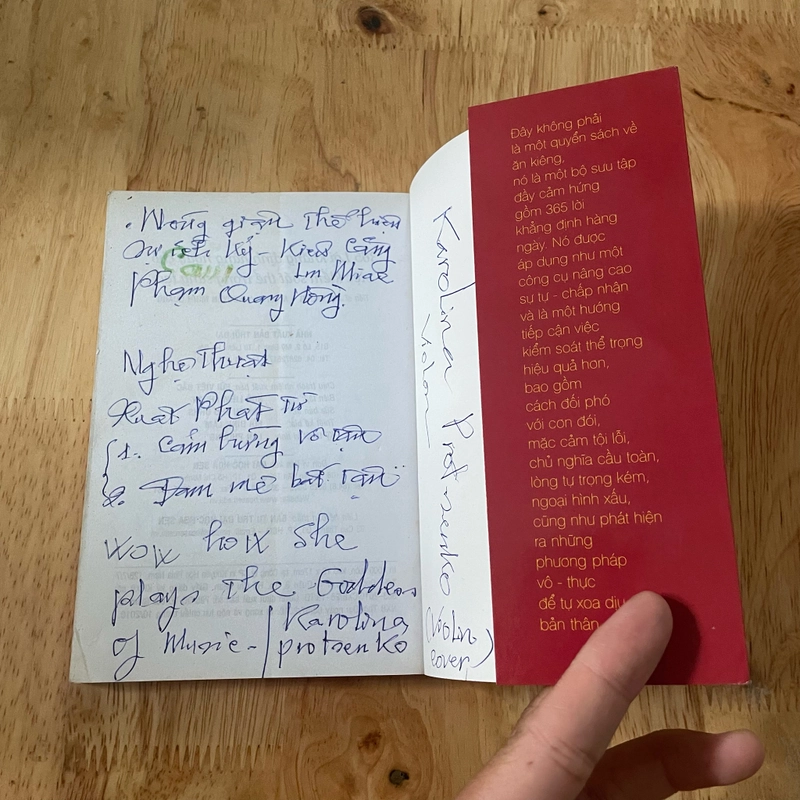 . Nóng giận thể hiện
sự ích kỷ - Kiêu căng
Phạm Quang Hồng.
Nghệ Thuật
Xuất Phát Từ
1. Cảm hứng vô tận
2. Đam mê bất tận
wow how She
plays The Goddess
of Music - Karolina
protsenko
Karolina Protsenko
Violon
(Violin
cover)
Đây không phải
là một quyển sách về
ăn kiêng,
nó là một bộ sưu tập
đầy cảm hứng
gồm 365 lời
khẳng định hàng
ngày. Nó được
áp dụng như một
công cụ nâng cao
sự tự - chấp nhận
và là một hướng
tiếp cận việc
kiểm soát thể trọng
hiệu quả hơn,
bao gồm
cách đối phó
với cơn đói,
mặc cảm tội lỗi,
chủ nghĩa cầu toàn,
lòng tự trọng kém,
ngoại hình xấu,
cũng như phát hiện
ra những
phương pháp
vô - thực
để tự xoa dịu
bản thân